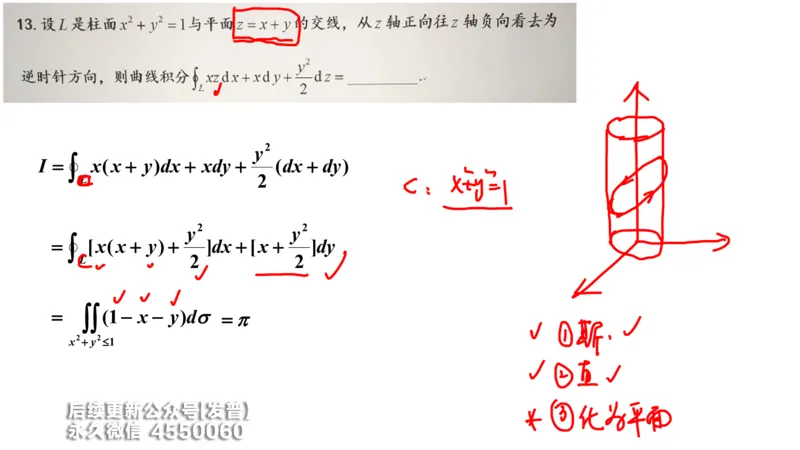 13. 设 L 是柱面 x² + y² = 1 与平面 z = x + y 的交线，从 z 轴正向往 z 轴负向看去为
逆时针方向，则曲线积分 ∮_L xzdx + xdy + y²/2 dz = ________.
I = ∮_L x(x + y)dx + xdy + y²/2 (dx + dy)
C: x²+y²=1
= ∮_L [x(x + y) + y²/2]dx + [x + y²/2]dy
= ∬_{x²+y²≤1} (1 − x − y)dσ = π
①斯.
②直
③化为平面
后续更新公众号(发普)
永久微信 4550060